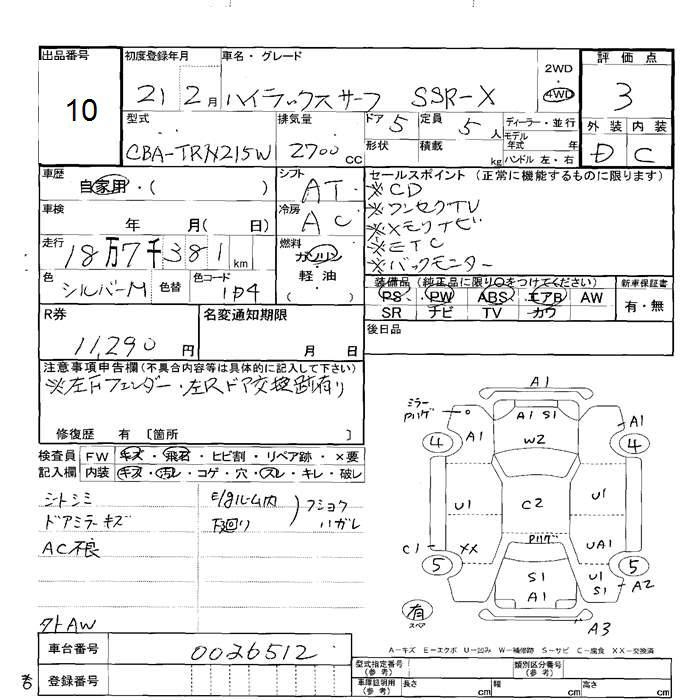 出品番号 初度登録年月 車名・グレード 2WD・4WD 評価点
10 21 2月 ハイラックスサーフ SSR-X 3
型式 排気量 ドア 5 定員 5人 ディーラー・並行 外装 内装
CBA-TRN215W 2700cc 形状 積載 kg モデル年式 年 ハンドル 左・右 D C
車歴 自家用・( ) シフト AT セールスポイント (正常に機能するものに限ります)
※CD
車検 年 月( 日) 冷房 AC ※ワンセグTV
※メモリナビ
走行 18万7千381km 燃料 ガソリン 軽・油 ( ) ※ETC
※バックモニター
色 シルバーM 色替 色コード 1D4 装備品 (純正品に限り○をつけてください) 新車保証書
PS PW ABS エアB AW 有・無
SR ナビ TV カワ
R券 11,290円 名変通知期限 月 日 後日品
注意事項申告欄(不具合内容等は具体的に記入して下さい)
※左Fフェンダー・左Rドア交換跡有り
修復歴 有 〔箇所 〕
検査員 FW キズ・飛石・ヒビ割・リペア跡・×要
記入欄 内装 キズ・汚レ・コゲ・穴・スレ・キレ・破レ
シートシミ E/gルーム内
ドアミラーキズ 下廻り フショク ハガレ
AC不良
タトAW
A1
ミラー
A1 S1
A1 A1
W2
4 4
U1 C2 U1
C1 XX UA1
5 5
S1 U1
A1 S1 A2
有 スペア A3
A-キズ E-エクボ U-凹み W-補修跡 S-サビ C-腐食 XX-交換済
車台番号 0026512 型式指定番号(参考) 類別区分番号(参考)
登録番号 車庫証明用(参考) 長さ cm 幅 cm 高さ cm